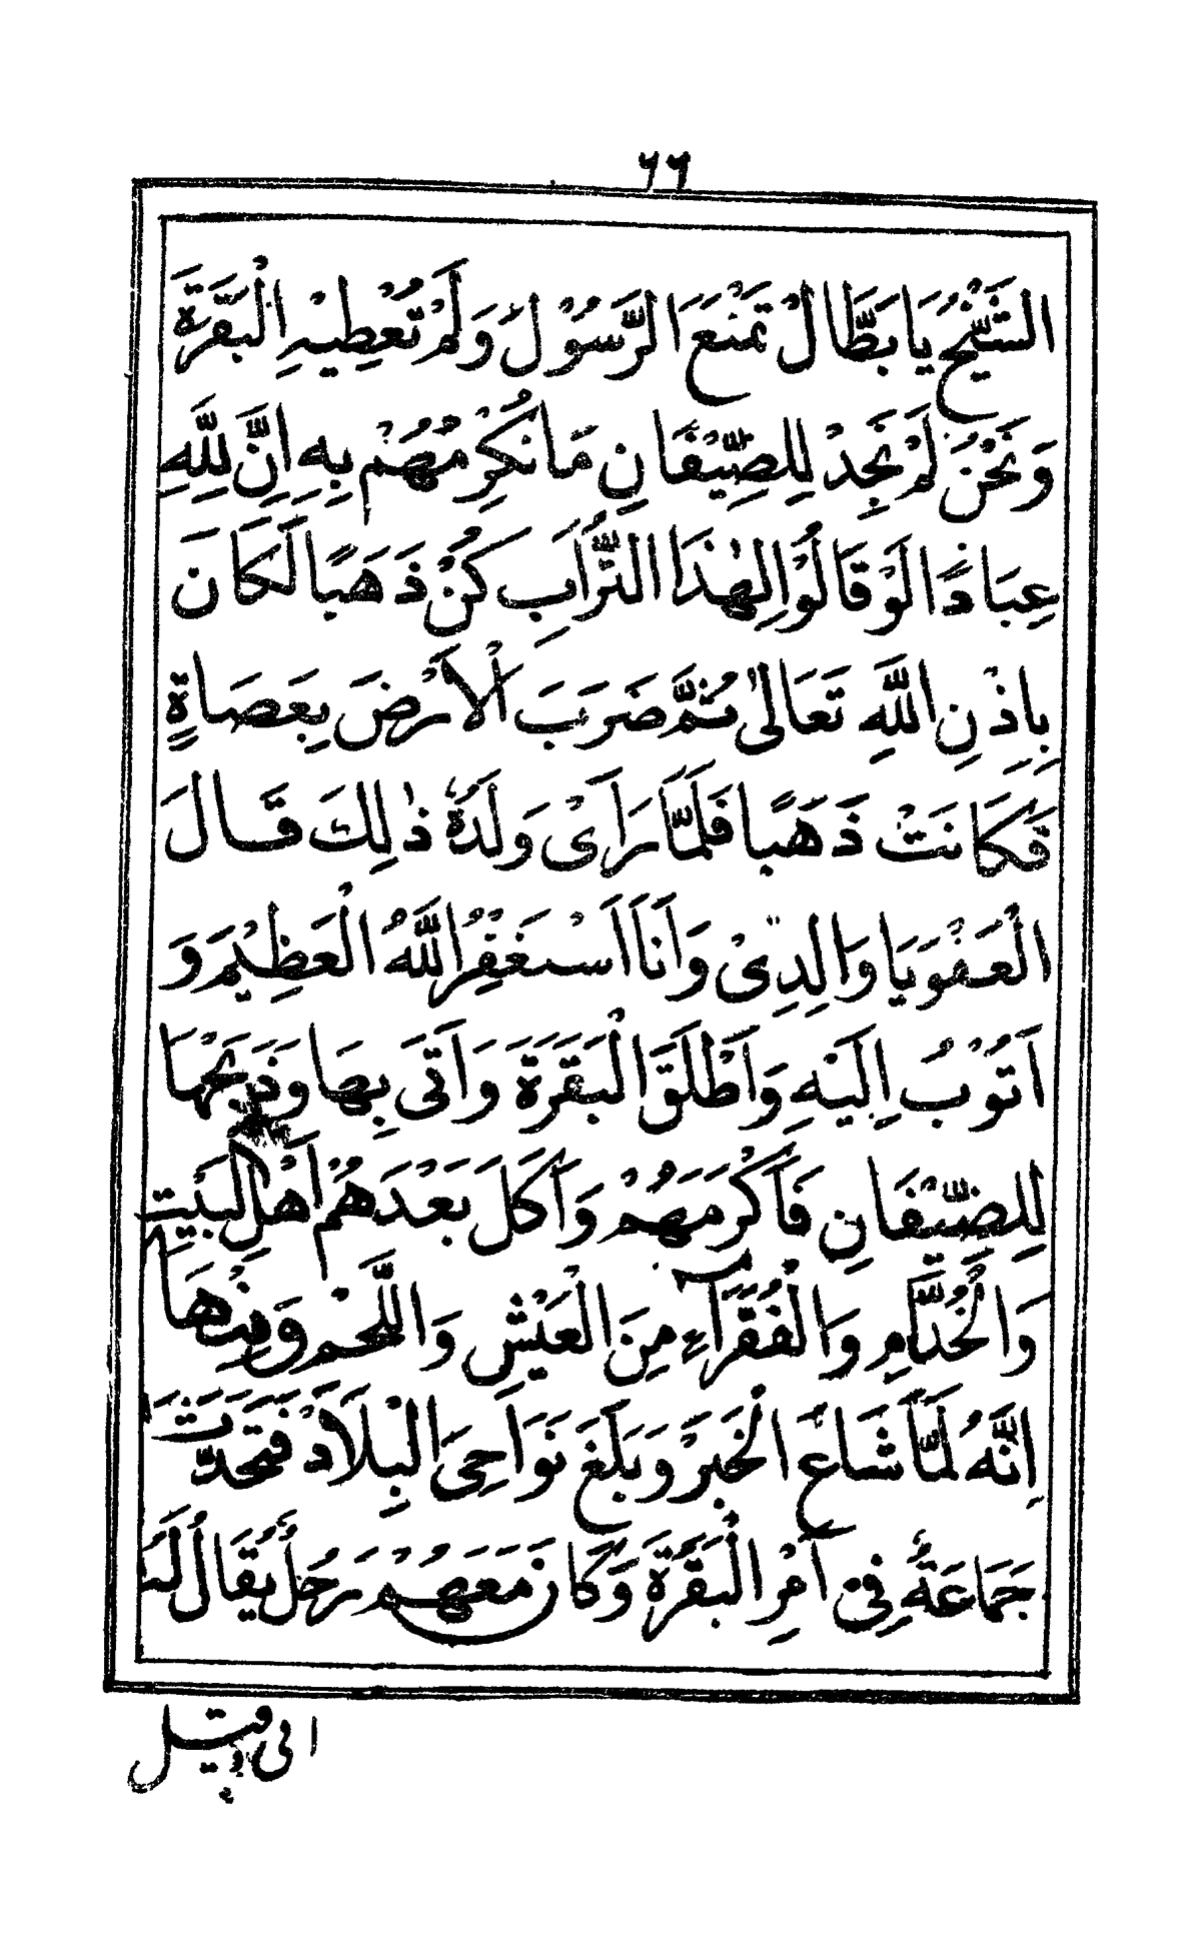 ٦٦
الشَّيْخُ يَا بَطَّالْ تَمْنَعَ الرَّسُوْلَ وَلَمْ تُعْطِيْهِ الْبَقَرَةَ
وَنَحْنُ لَمْ نَجِدْ لِلضِّيْفَانِ مَا نُكْرِمُهُمْ بِهِ اِنَّ لِلّٰهِ
عِبَادًا لَوْ قَالُوْا لِهٰذَا التُّرَابِ كُنْ ذَهَبًا لَكَانَ
بِاِذْنِ اللّٰهِ تَعَالىٰ ثُمَّ ضَرَبَ الْاَرْضَ بِعَصَاةٍ
فَكَانَتْ ذَهَبًا فَلَمَّا رَاَىْ وَلَدُهٗ ذٰلِكَ قَالَ
الْعَفْوَ يَا وَالِدِىْ وَاَنَا اَسْتَغْفِرُ اللّٰهَ الْعَظِيْمَ وَ
اَتُوْبُ اِلَيْهِ وَاَطْلَقَ الْبَقَرَةَ وَاَتَى بِهَا وَذَبَحْهَا
لِلضِّيْفَانِ فَاَكْرَمَهُمْ وَاَكَلَ بَعْدَهُمْ اَهْلِ الْبَيْتِ
وَالْخُدَّامِ وَالْفُقَرَآءِ مِنَ الْعَيْشِ وَاللَّحْمِ وَمِنْهَا
اِنَّهُ لَمَّا شَاعَ الْخَبَرْ وَبَلَغَ نَوَاحِىَ الْبِلَادْ فَتَحَدَّثَتْ
جَمَاعَةٌ فِىْ اَمْرِ الْبَقَرَةِ وَكَانَ مَعَهُمْ رَجُلٌ يُقَالُ لَهُ